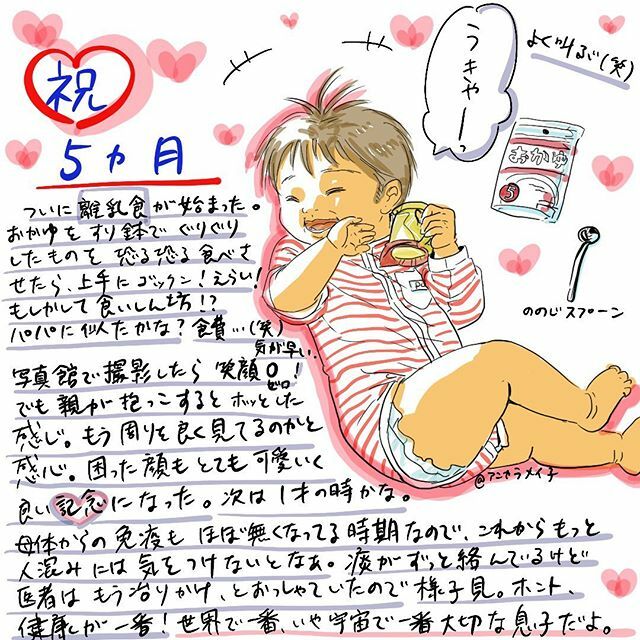 祝
5ヵ月
うきゃーっ
よく叫ぶ(笑)
おかゆ
5
ののじスプーン
ついに離乳食が始まった。
おかゆをすり鉢でぐりぐり
したものを恐る恐る食べさ
せたら、上手にゴックン!えらい!
もしかして食いしん坊!?
パパに似たかな?食費…(笑)
気が早い。
写真館で撮影したら笑顔0!
ゼロ
でも親が抱っこするとホッとした
感じ。もう周りを良く見てるのかと
感心。困った顔もとても可愛いく
良い記念になった。次は1才の時かな。
@アニャラメイ子
母体からの免疫もほぼ無くなってる時期なので、これからもっと
人混みには気をつけないとなぁ。痰がずっと絡んでいるけど
医者はもう治りかけ、とおっしゃていたので様子見。ホント、
健康が一番!世界で一番、いや宇宙で一番大切な息子だよ。